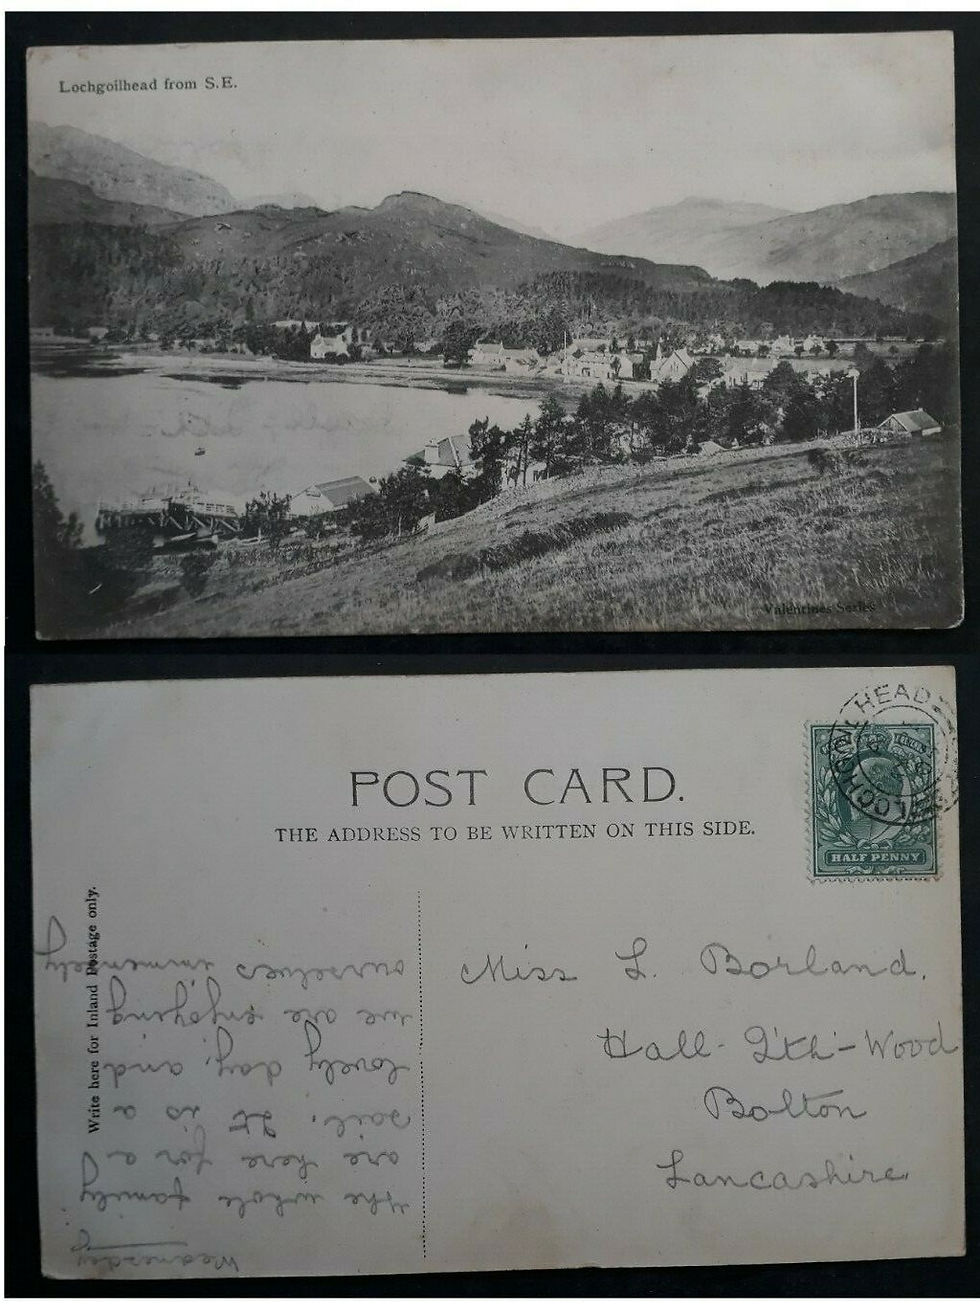 Lochgoilhead from S.E.
Valentines Series
POST CARD.
THE ADDRESS TO BE WRITTEN ON THIS SIDE.
HALF PENNY
Write here for Inland Postage only.
Wednesday
The whole family
are here for a
sail. It is a
lovely day, and
we are enjoying
ourselves immensely
Miss L. Borland.
Hall-I'th'-Wood
Bolton
Lancashire